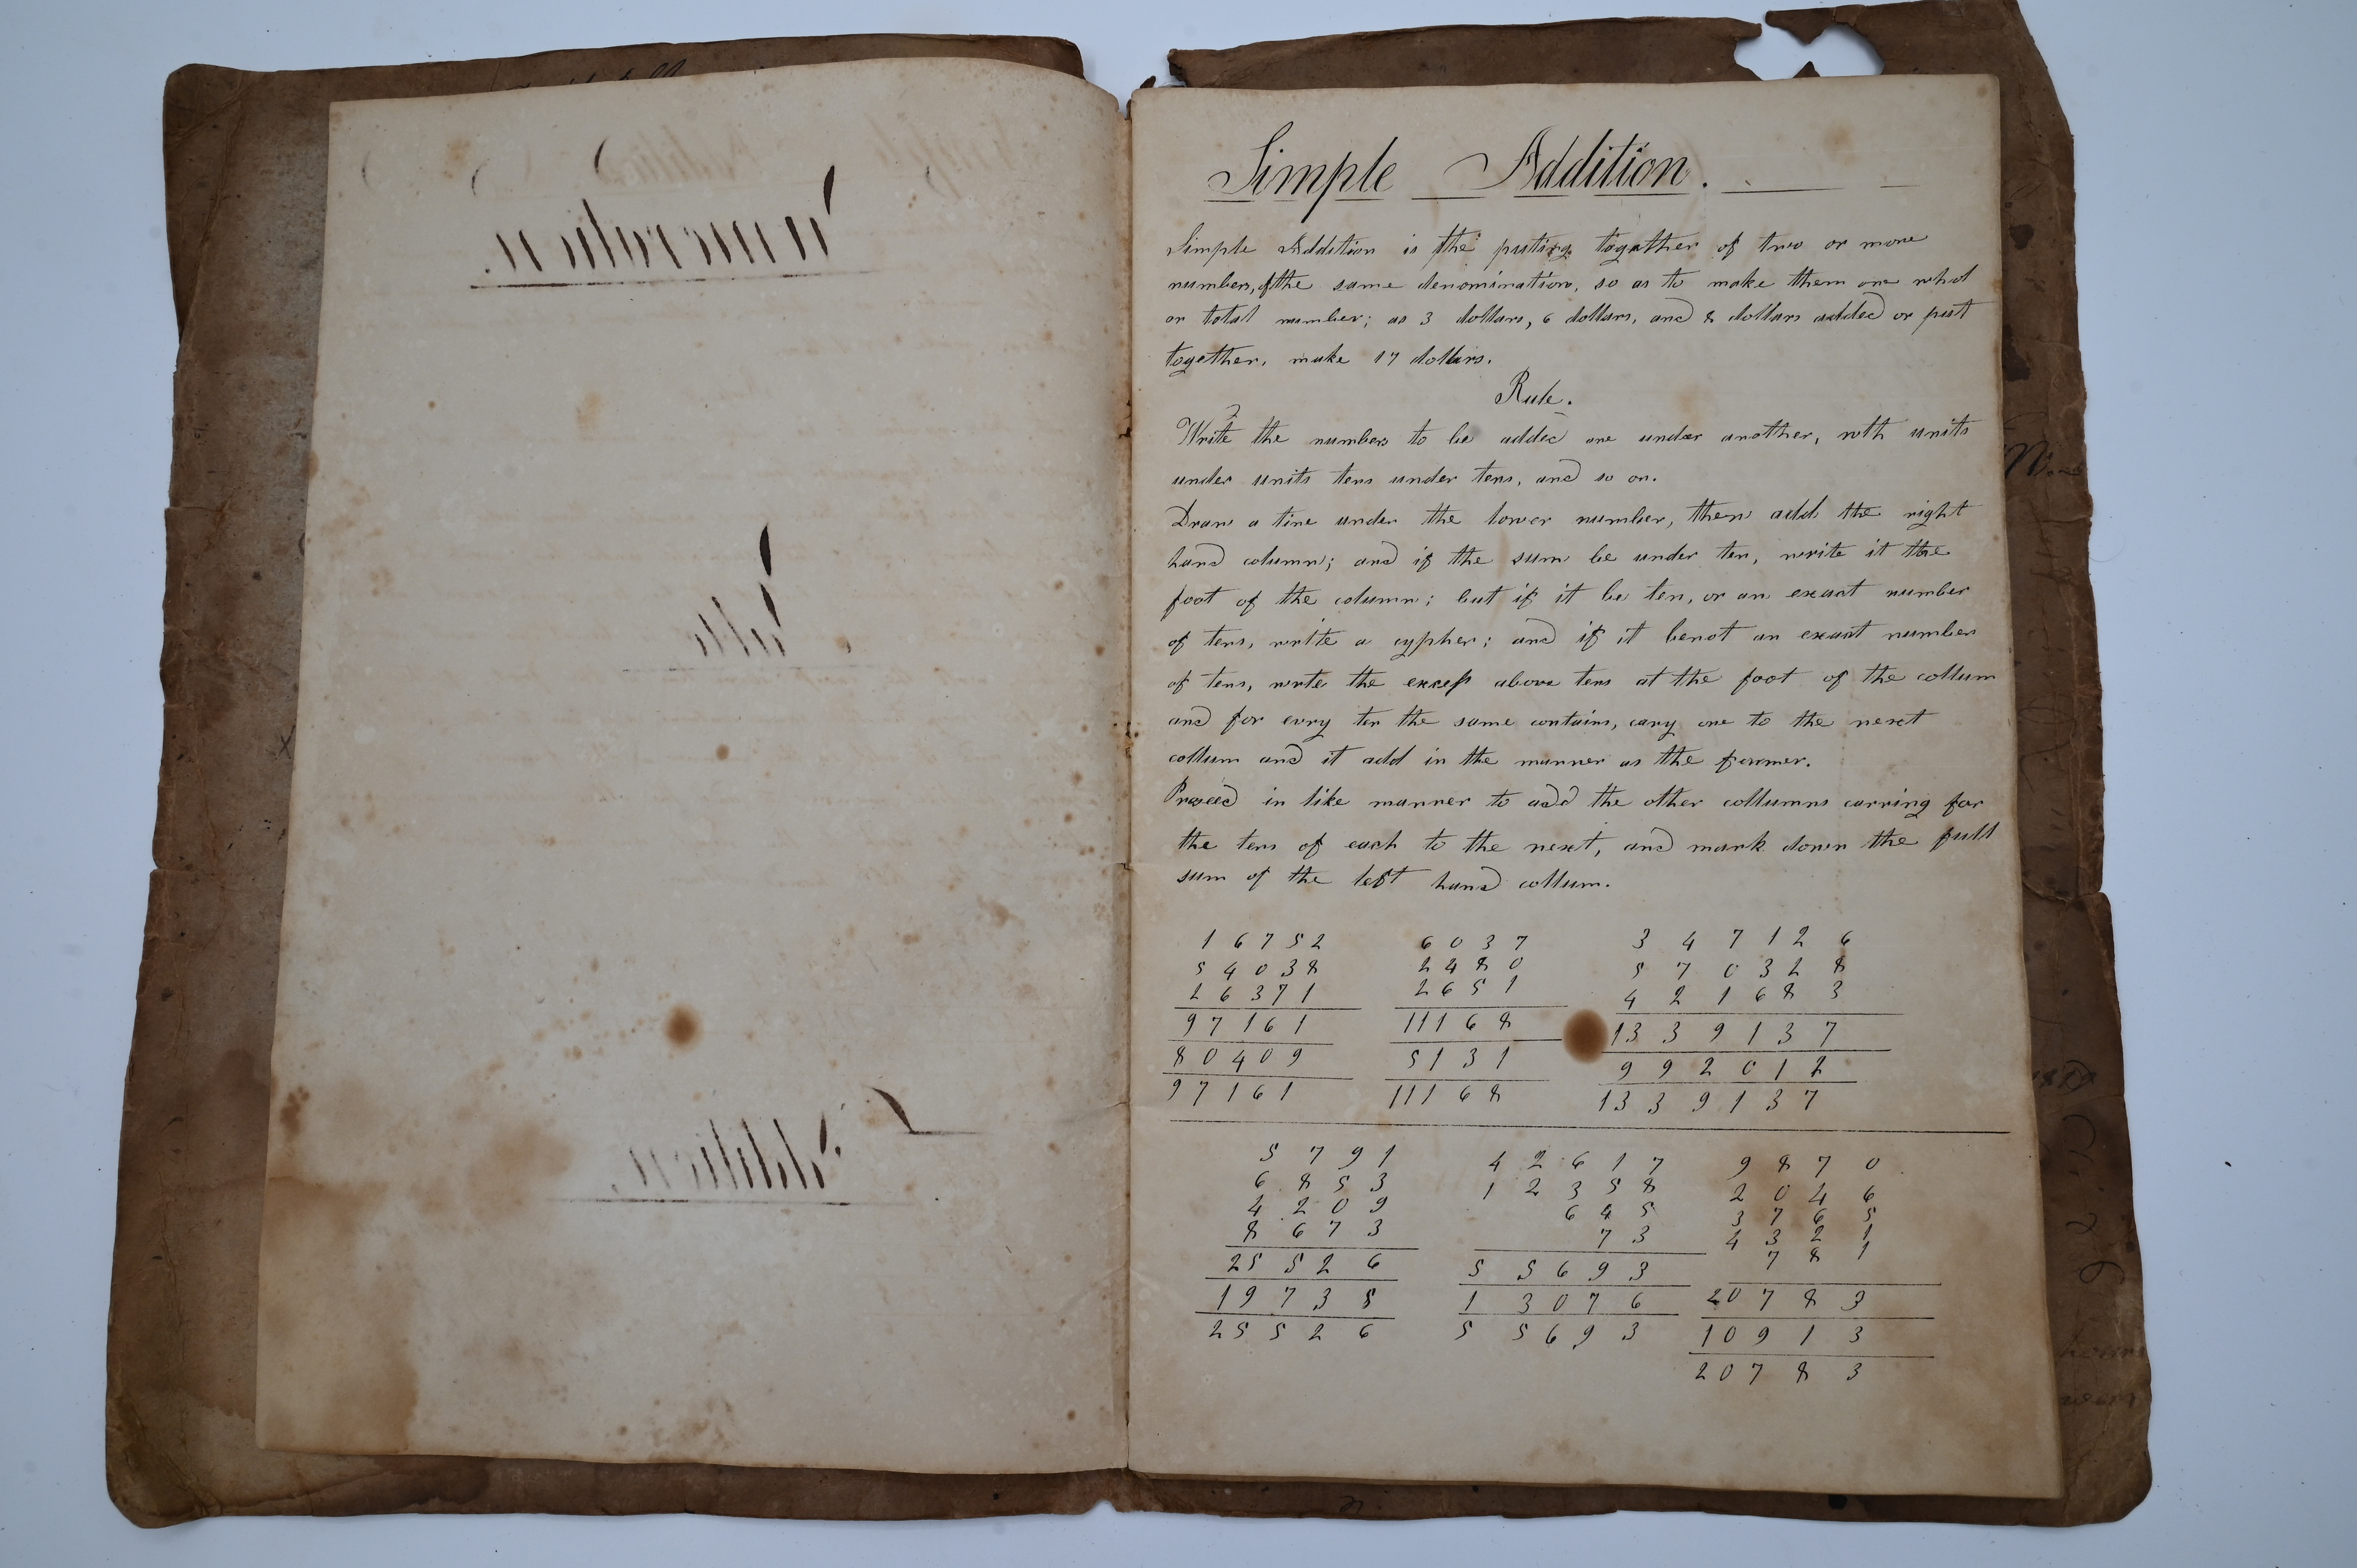 Simple Addition.
Simple Addition is the puting together of two or more
numbers, of the same denomination, so as to make them one whol
or total number; as 3 dollars, 6 dollars, and 8 dollars added or put
together, make 17 dollars.
Rule.
Write the numbers to be added one under another, wth units
under units tens under tens, and so on.
Draw a line under the lower number, then add the right
hand column; and if the sum be under ten, write it the
foot of the column; but if it be ten, or an exact number
of tens, write a cypher; and if it benot an exact number
of tens, write the excess above tens at the foot of the collum
and for evry ten the same contains, cary one to the next
collum and it add in the manner as the former.
Proceed in like manner to add the other collumns carring for
the tens of each to the next, and mark down the full
sum of the left hand collum.
16752 6037 347126
54038 2480 570328
26371 2651 421683
97161 11168 1339137
80409 5131 992012
97161 11168 1339137
5791 42617 9870
6853 12358 2046
4209 645 3765
8673 73 4321
781
25526 55693 20783
19735 13076 10913
25526 55693 20783